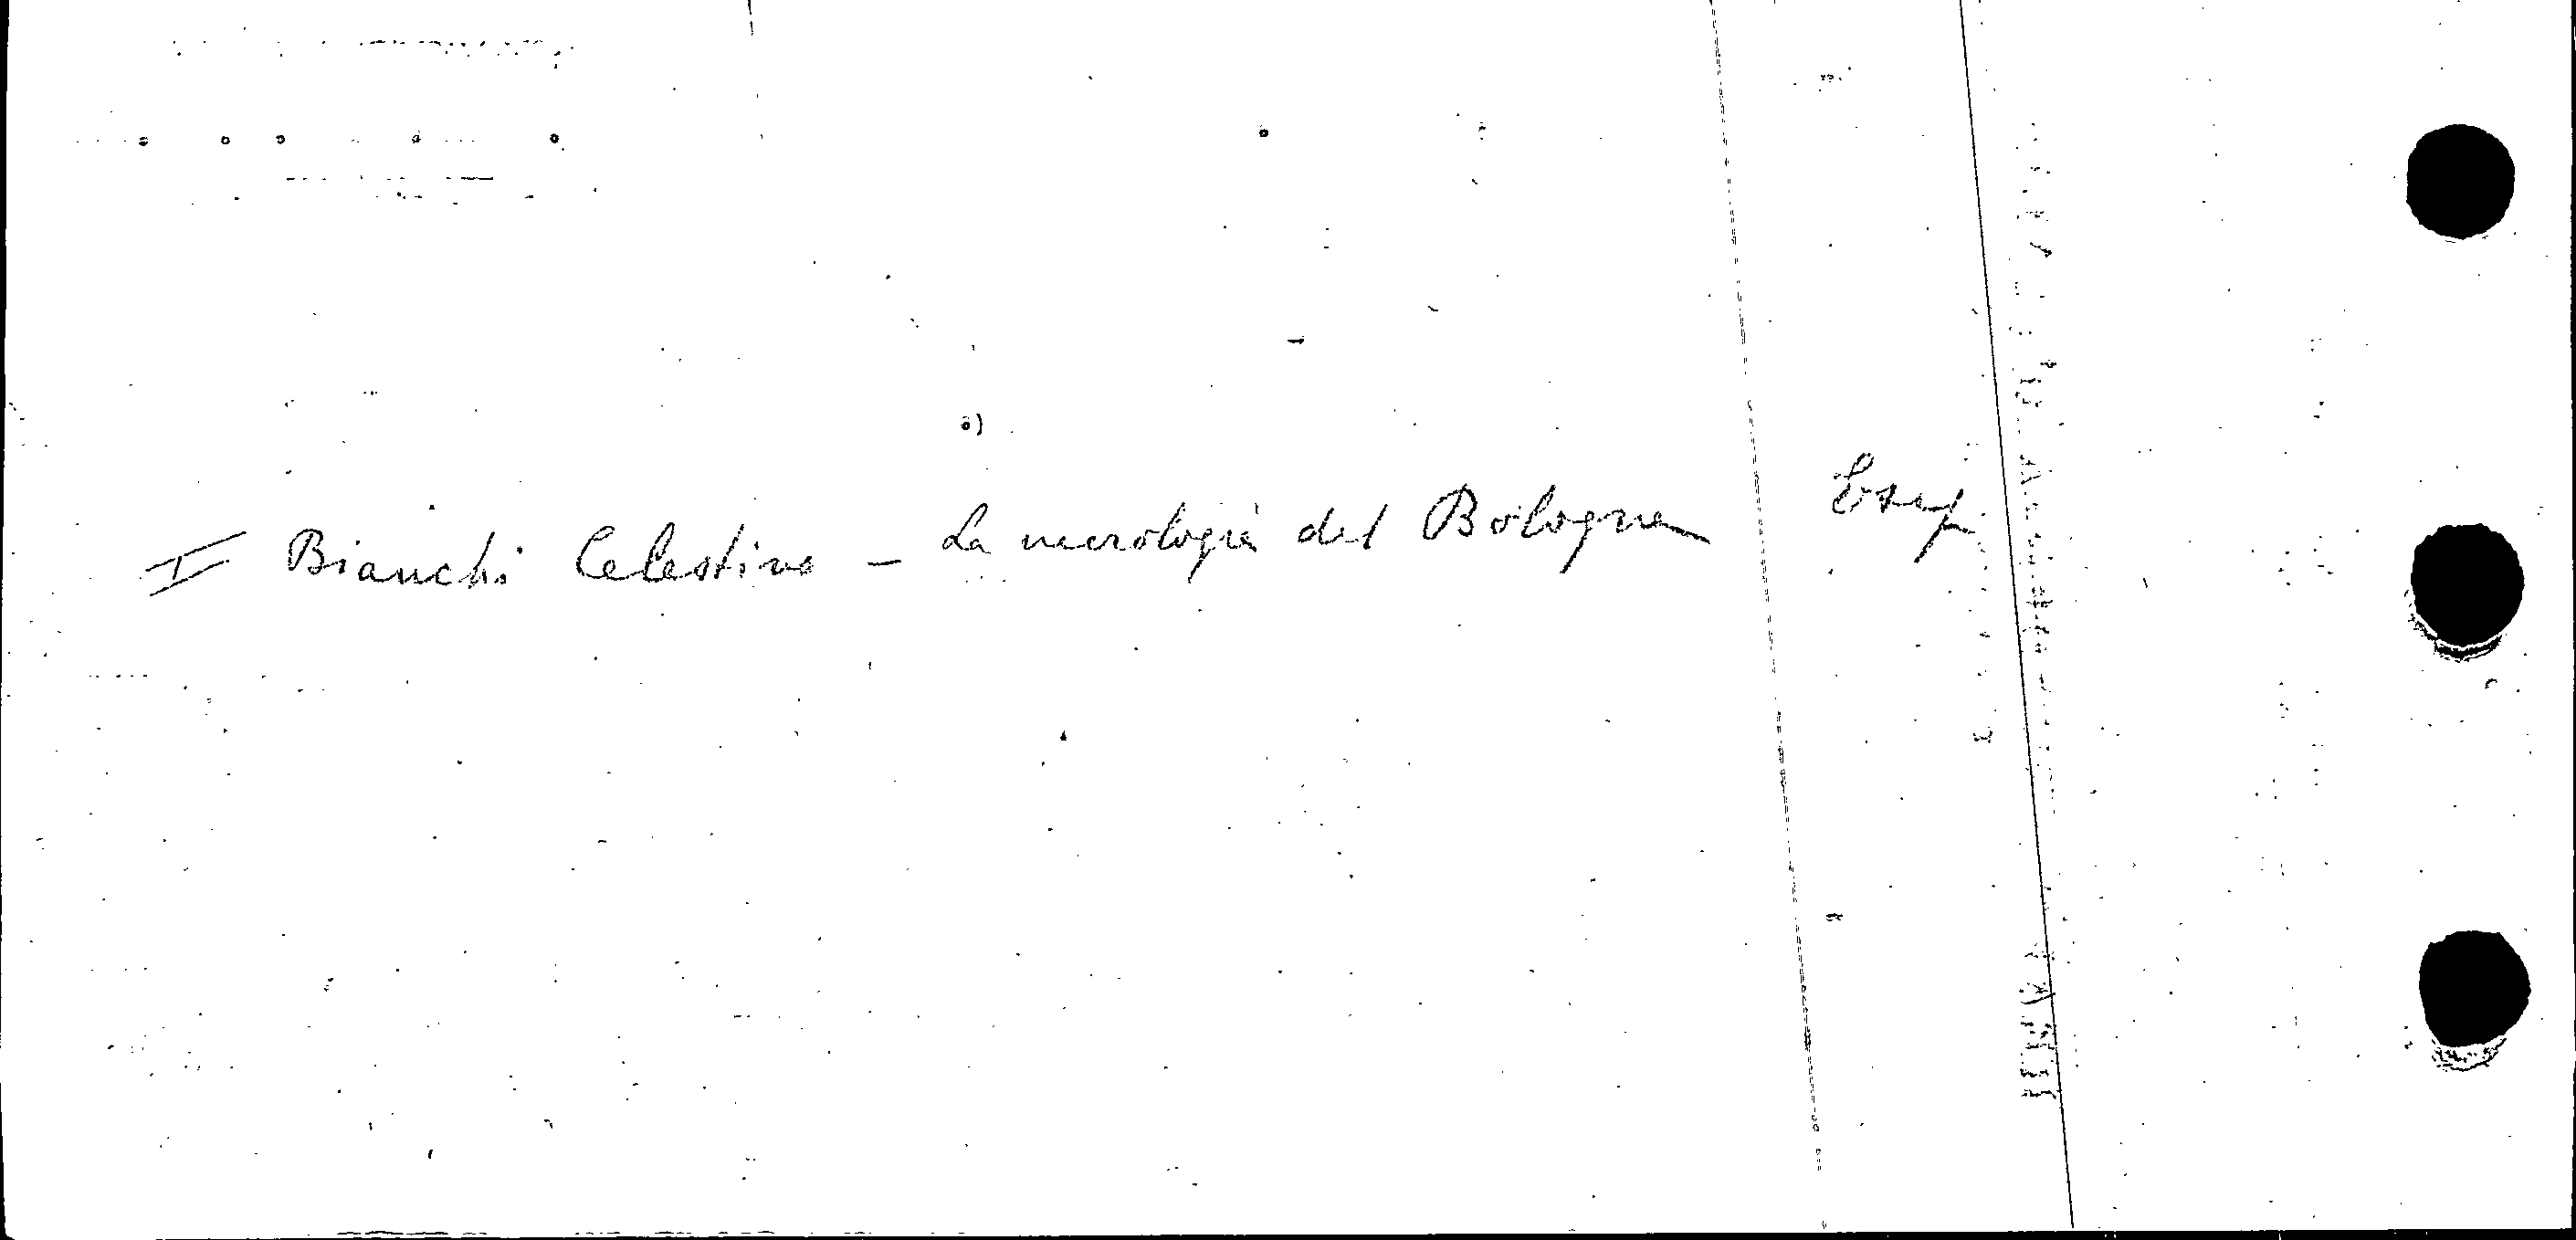 I Bianchi Celestino - La necrologia del Bologna